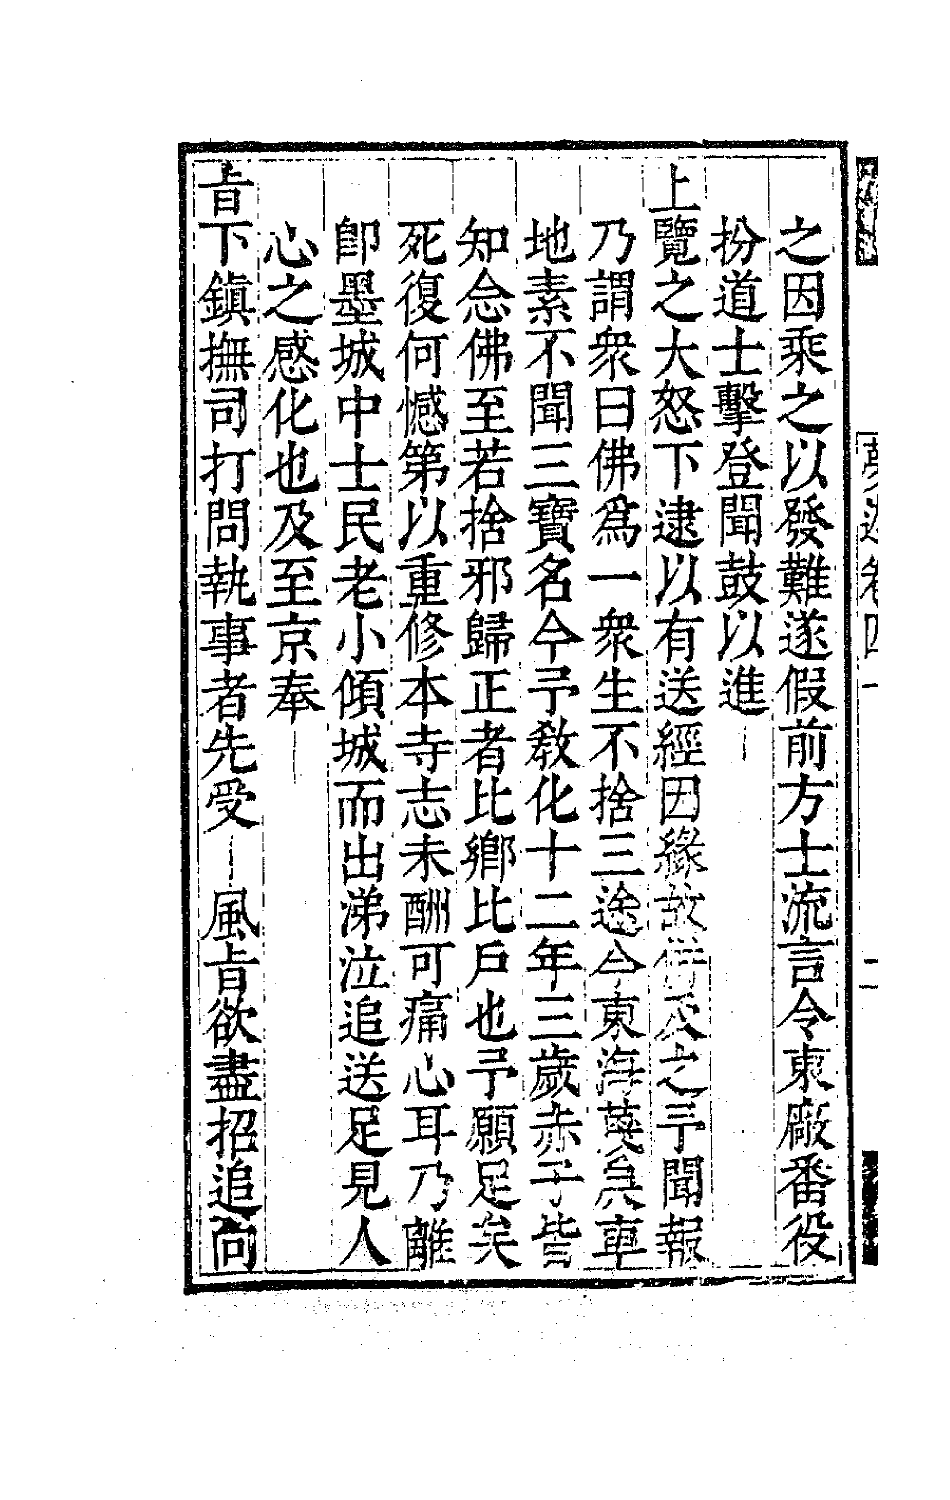 之因乘之以發難遂假前方士流言令東廠番役
扮道士擊登聞鼓以進
上覽之大怒下逮以有送經因緣故併及之予聞報
乃謂衆曰佛爲一衆生不捨三途今東海蔑戾車
地素不聞三寶名今予敎化十二年三歲赤子皆
知念佛至若捨邪歸正者比鄉比戶也予願足矣
死復何憾第以重修本寺志未酬可痛心耳乃離
卽墨城中士民老小傾城而出涕泣追送足見人
心之感化也及至京奉
旨下鎮撫司打問執事者先受
風旨欲盡招追向
夢遊卷四